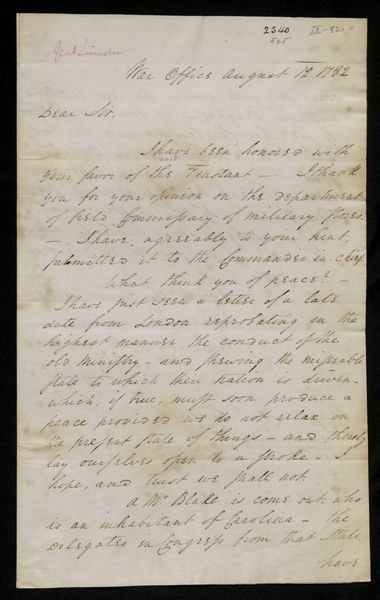 2340
525
IX-
Genl Lincoln
War Office August 12. 1782
Dear Sir.
I have been honored with
your favor of the 7 instant — I thank
you for your opinion on the department
of field Commissary of military stores.
— I have, agreeably to your hint,
submitted it to the Commander in chief
What think you of peace? —
I have just seen a letter of a late
date from London reprobating in the
highest manner the conduct of the
old ministry — and shewing the miserable
state to which their nation is driven —
which, if true, must soon produce a
peace provided we do not relax on
the present state of things — and thereby
lay ourselves open to a stroke — I
hope, and trust we shall not.
A Mr Blake is come out who
is an inhabitant of Carolina — the
Delegates in Congress from that State
have